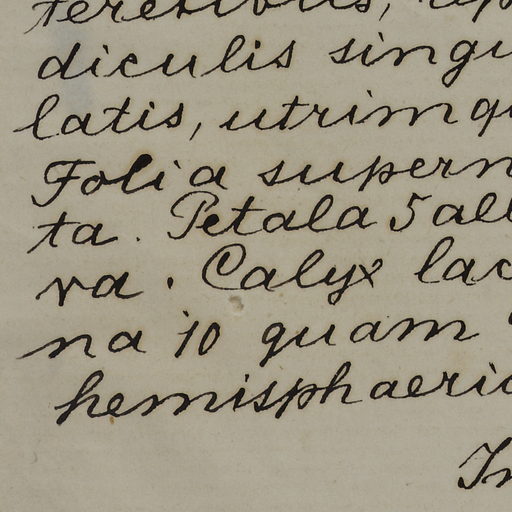 diculis singu
latis, utrimqu
Folia supern
ta. Petala 5 all
va. Calyx lac
na 10 quam
hemisphaeric
In